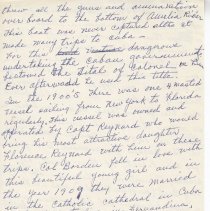 threw all the guns and ammunition
over board to the bottom of Aucilla River
This boat was never captured altho it
made many trips to Cuba -
For this dangerous
undertaking the Cuban government
bestowed the title of Colonel on him
Ever afterwards he used this title.
In the 1900's there was one 4 masted
vessel sailing from New York to Florida
regularly, this vessel was owned &
operated by Capt Reynard who would
bring his most attractive daughter,
Florence Reynard with him on these
trips, Col Borden fell in love with
this beautiful young girl and in
the year 1909 they were married
in the Catholic cathedral in Cuba
in Fernandina,